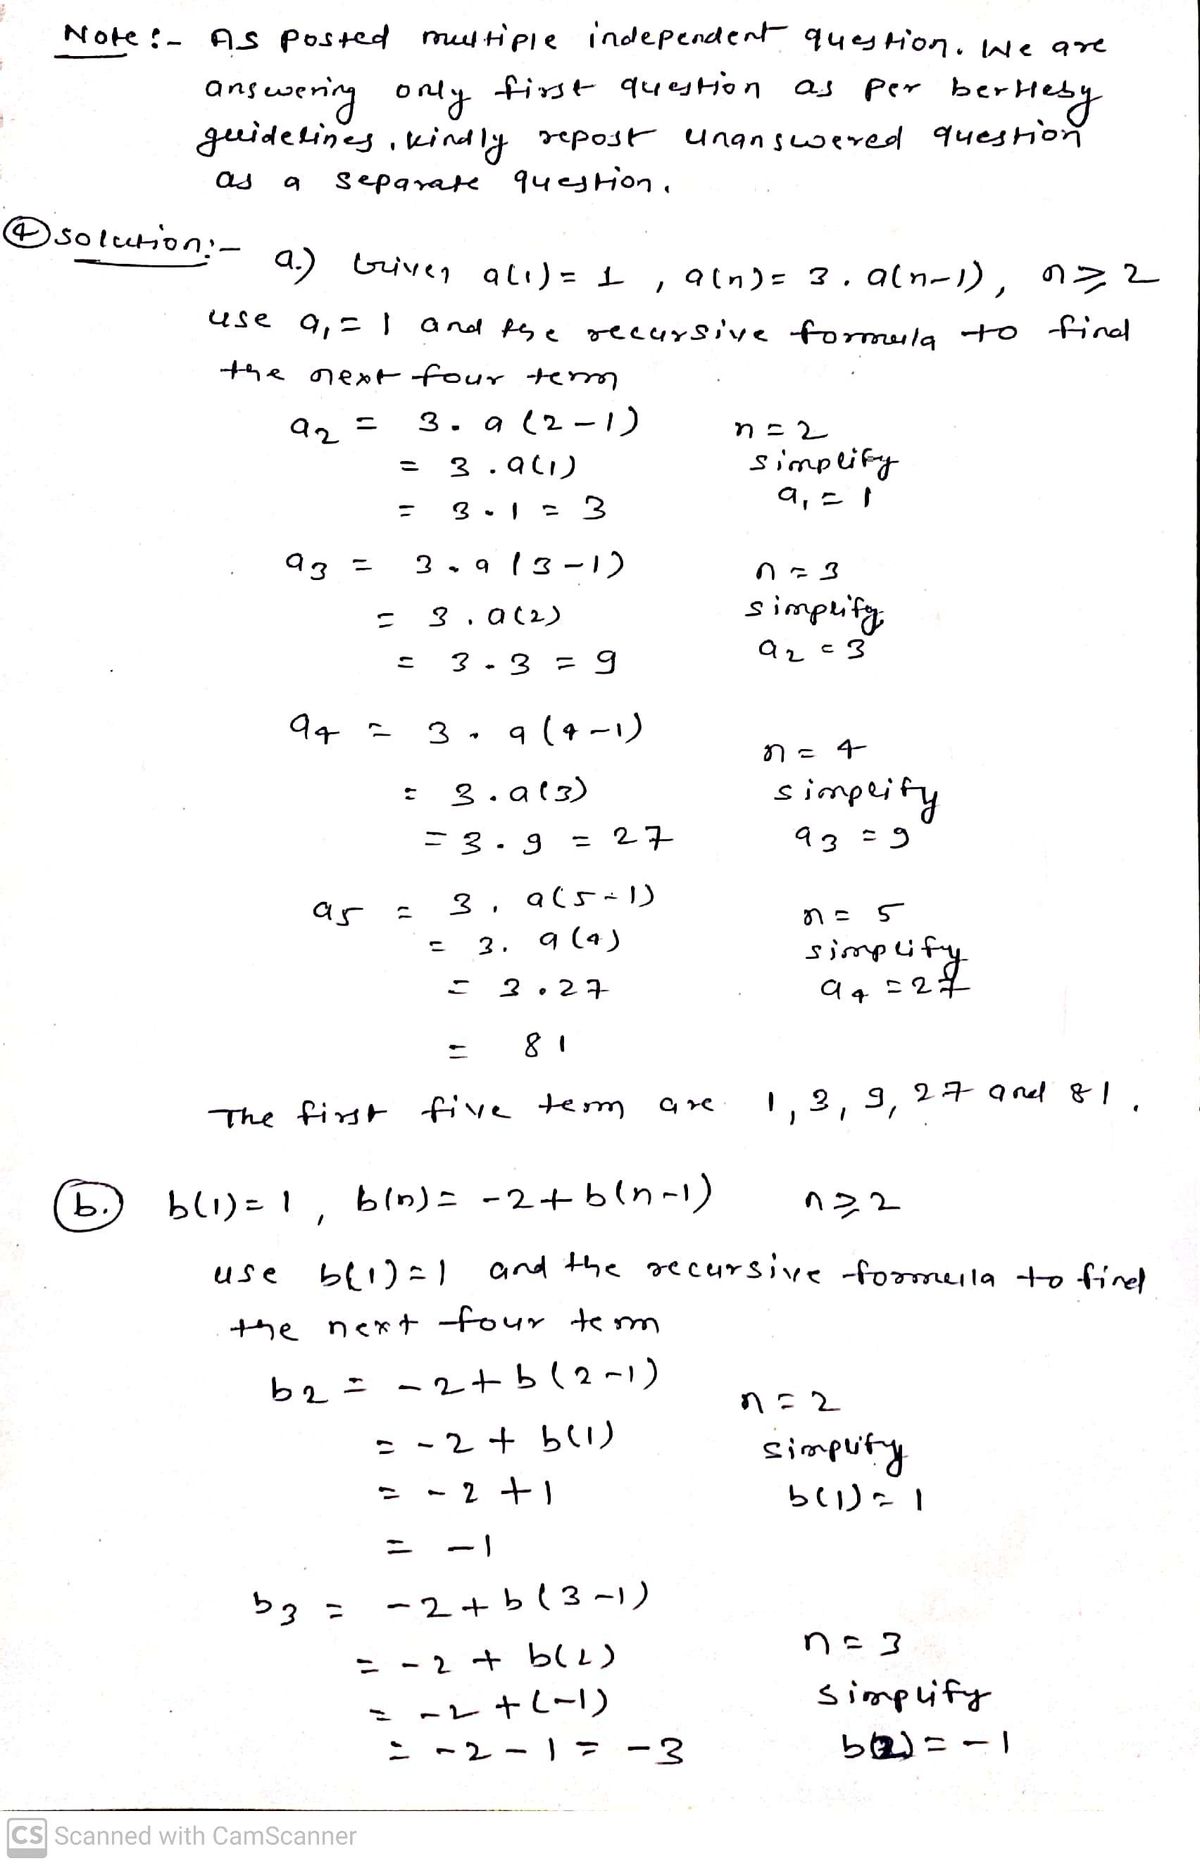 Note :- As posted multiple independent question. We are
answering only first question as per bertleby
guidelines, kindly repost unanswered question
as a separate question.
④ solution:- a.) Given a(1) = 1 , a(n) = 3 . a(n-1), n ≥ 2
use a₁ = 1 and the recursive formula to find
the next four term
a₂ = 3 . a (2-1) n = 2
= 3 . a(1) simplify
= 3 . 1 = 3 a₁ = 1
a₃ = 3 . a (3-1) n = 3
= 3 . a(2) simplify
= 3 . 3 = 9 a₂ = 3
a₄ = 3 . a (4-1) n = 4
= 3 . a(3) simplify
= 3 . 9 = 27 a₃ = 9
a₅ = 3 . a(5-1) n = 5
= 3 . a (4) simplify
= 3 . 27 a₄ = 27
= 81
The first five term are 1, 3, 9, 27 and 81.
(b.) b(1) = 1 , b(n) = -2 + b(n-1) n ≥ 2
use b(1) = 1 and the recursive formula to find
the next four term
b₂ = -2 + b (2-1) n = 2
= -2 + b(1) simplify
= -2 + 1 b(1) = 1
= -1
b₃ = -2 + b (3-1)
= -2 + b(2) n = 3
= -2 + (-1) simplify
= -2 - 1 = -3 b(2) = -1
CS Scanned with CamScanner